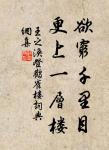 欲窮千里目
更上一層楼
王之渙登鸛雀樓詞典
網集